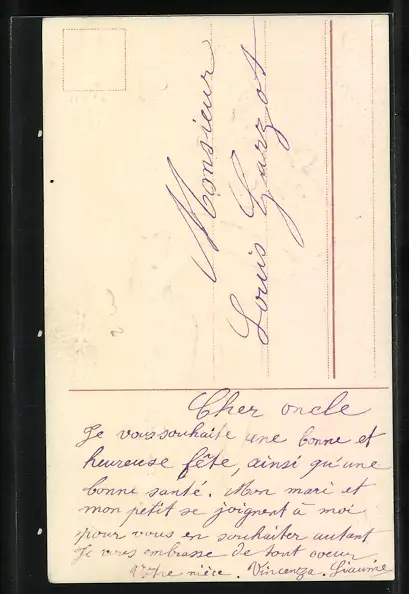 Monsieur
Louis Garzot
Cher oncle
Je vous souhaite une bonne et
heureuse fête, ainsi qu'une
bonne santé. Mon mari et
mon petit se joignent à moi
pour vous en souhaiter autant
Je vous embrasse de tout coeur.
Votre nièce. Vincenza. Liaume